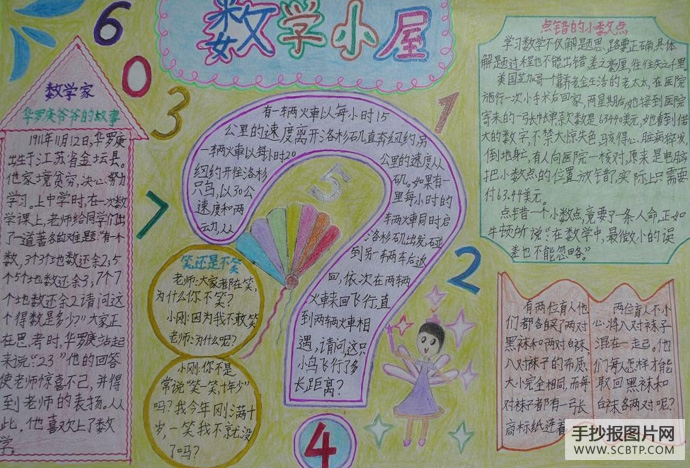 数学小屋
数学家
华罗庚爷爷的故事
1911年11月12日,华罗庚
出生于江苏省金坛县。
他家境贫穷,决心努力
学习。上中学时,在一次数
学课上,老师给同学们出
了一道著名的难题:"有一个
数,3个3个地数还余2,5
个5个地数还余3,7个7
个地数还余2,请问这
个得数是多少?"大家正
在思考时,华罗庚站起
来说:"23"他的回答
使老师惊喜不已,并得
到老师的表扬。从
此,他喜欢上了数
学
6
0
3
7
1
5
2
4
有一辆火车以每小时15
公里的速度离开洛杉矶直奔纽约,另
一辆火车以每小时20
公里的速度从
纽约开往洛杉
矶。如果有一
只鸟,以30公
里每小时的
速度和两
车同时启
动,从
洛杉矶出发,碰
到另一车后返
回,依次在两辆
火车来回飞行,直
到两辆火车相
遇,请问,这只
小鸟飞行了多
长距离?
笑还是不笑
老师:大家都在笑,
为什么你不笑?
小刚:因为我不敢笑
老师:为什么呢?
小刚:你不是
常说"笑一笑,十年少"
吗?我今年刚满十
岁,一笑我不就没
了吗?
点错的小数点
学习数学不仅解题思路要正确,具体
解题过程也不能出错,差之毫厘,往往失之千里
美国芝加哥一个靠养老金生活的老太太,在医院
施行一次小手术后回家,两星期后,她接到医院
寄来的一张帐单,款数是63440美元,她看到偌
大的数字,不禁大惊失色,骇得心脏病猝发,
倒地身亡,后来,有人向医院一核对,原来是电脑
把小数点的位置放错了,实际上只需要
付63.44美元。
点错一个小数点,竟要了一条人命,正如
牛顿所说:"在数学中,最微小的误
差也不能忽略。
有两位盲人,他
们都各自买了两对
黑袜和两对白袜,
八对袜子的布质、
大小完全相同,而每
对袜子都有一张
商标纸连着
两位盲人不小
心将八对袜子
混在一起,他
们每人怎样才能
取回黑袜和
白袜各两对呢?
手抄报图片网
WWW.SCBTP.COM